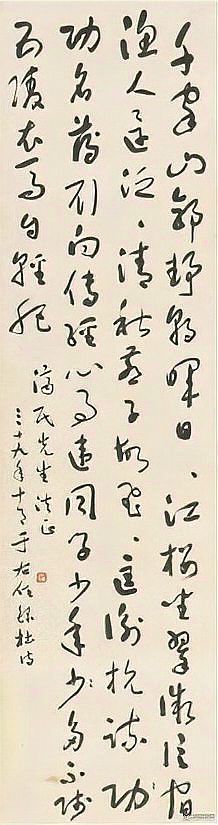 千家山郭靜朝暉日〻江樓坐翠微信宿
漁人還泛〻清秋燕子故飛〻匡衡抗疏功
功名薄劉向傳經心事違同學少年少多不賤
五陵衣馬自輕肥
民先生法正
三十九年十月于右任錄杜詩